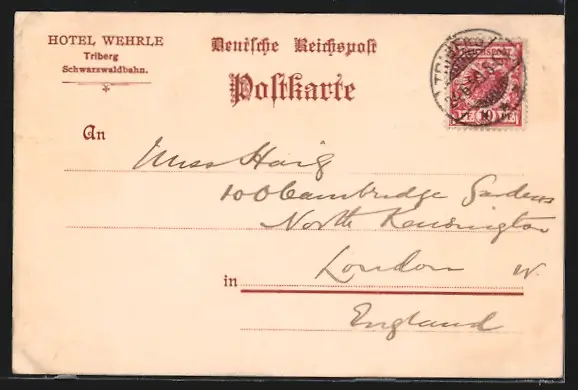 HOTEL WEHRLE
Triberg
Schwarzwaldbahn.
Deutsche Reichspost
Postkarte
REICHSPOST
10
An
Miss Haig
100 Cambridge Gardens
North Kensington
in London W.
England